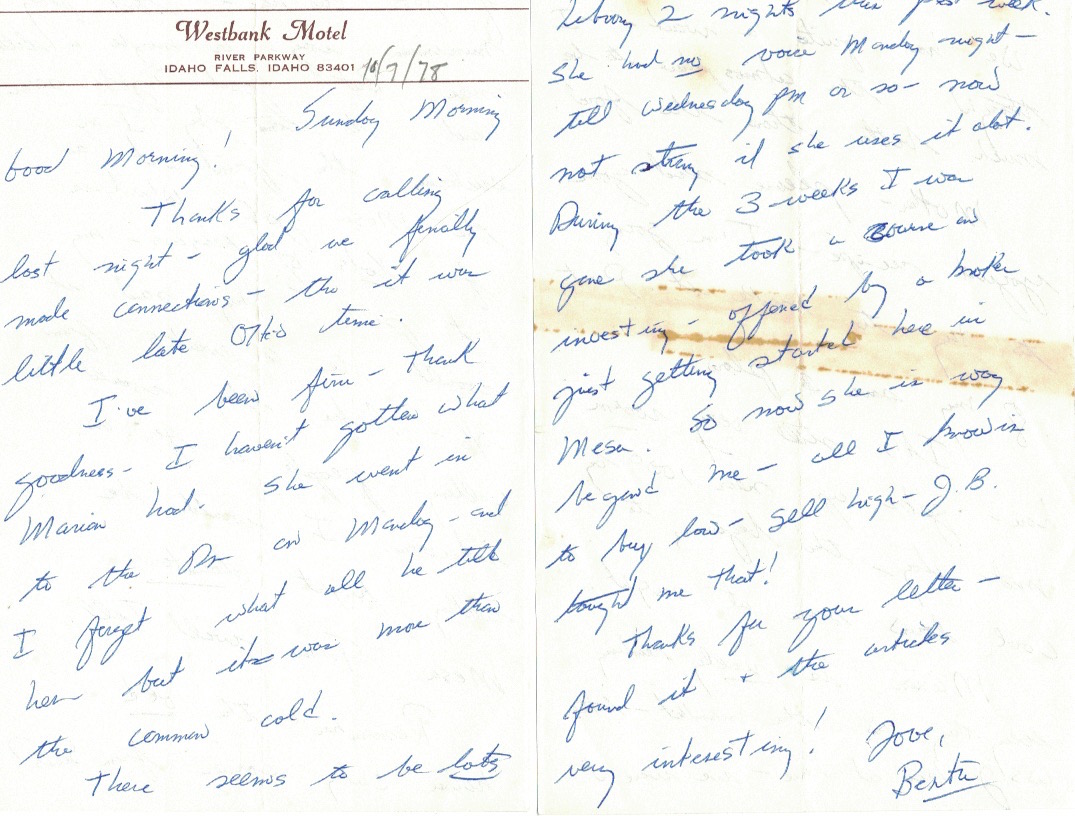 Westbank Motel
RIVER PARKWAY
IDAHO FALLS, IDAHO 83401 10/7/78
Sunday Morning
Good Morning!
Thanks for calling
last night - glad we finally
made connections - tho it was
little late Ohio time.
I've been fine - thank
goodness - I haven't gotten what
Marian had. She went in
to the Dr on Monday - and
I forget what all he told
her but it was more than
the common cold.
There seems to be lots
2 nights this past week.
She had no voice Monday night -
till Wednesday pm or so - now
not strong if she uses it alot.
During the 3 weeks I was
gone she took a course on
investing - offered by a broker
just getting started here in
Mesa. So now she is way
beyond me - all I know is
to buy low - sell high - J.B.
taught me that!
Thanks for your letter -
found it + the articles
very interesting! Love,